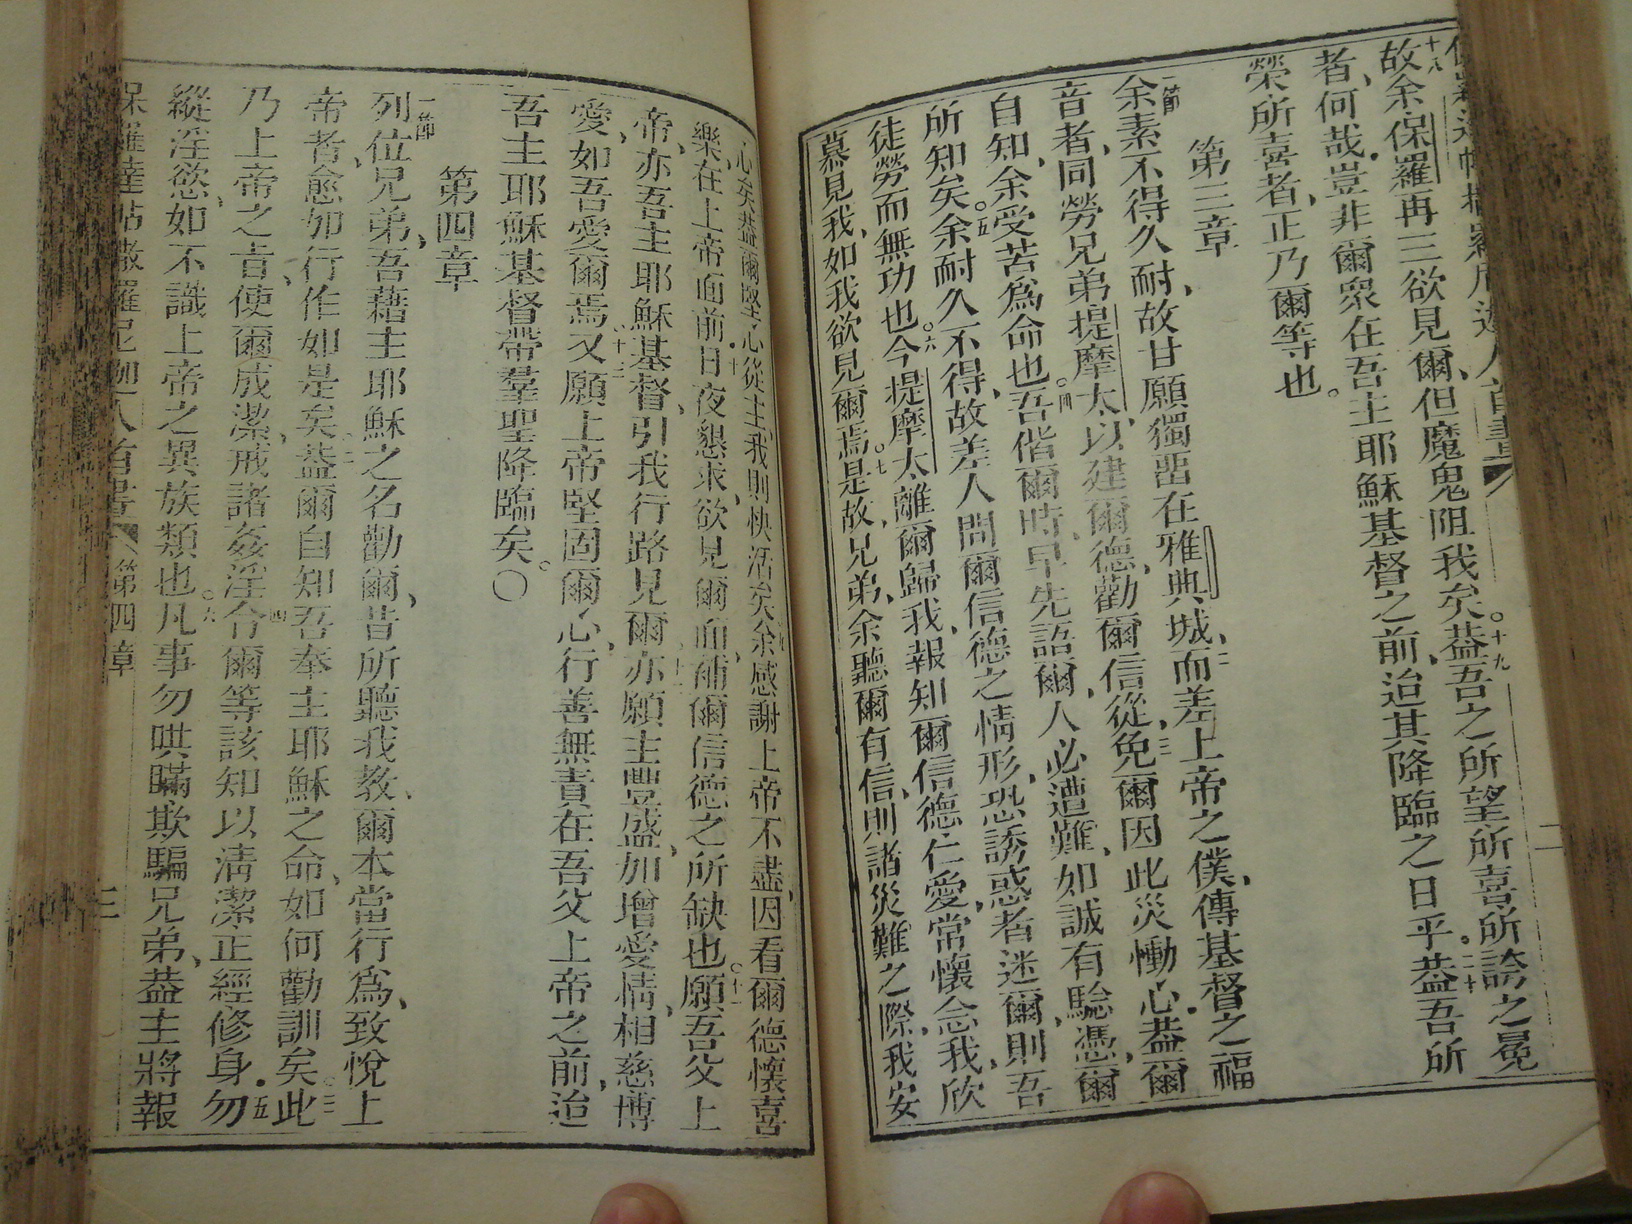 故余保羅再三欲見爾但魔鬼阻我矣。十九蓋吾之所望所喜所誇之冕
者、何哉豈非爾眾在吾主耶穌基督之前迨其降臨之日乎二十蓋吾所
榮所喜者、正乃爾等也。
第三章
一節余素不得久耐、故甘願獨留在雅典城、二而差上帝之僕、傳基督之福
音者、同勞兄弟提摩太、以建爾德、勸爾信從、三免爾因此災慟心蓋爾
自知、余受苦為命也。四吾偕爾時、早先語爾、人必遭難、如誠有驗、憑爾
所知矣。五余耐久不得、故差人問爾信德之情形、恐誘惑者迷爾、則吾
徒勞而無功也。六今提摩太離爾歸我、報知爾信德仁愛、常懷念我、欣
慕見我、如我欲見爾焉。七是故、兄弟、余聽爾有信、則諸災難之際、我安
心矣蓋爾堅心從主、我則快活矣余感謝上帝不盡、因看爾德懷喜
樂在上帝面前十日夜懇求、欲見爾面、補爾信德之所缺也。十一願吾父上
帝、亦吾主耶穌基督、引我行路見爾十二亦願主豐盛、加增愛情、相慈博
愛、如吾愛爾焉、十三又願上帝堅固爾心、行善無責在吾父上帝之前、迨
吾主耶穌基督帶羣聖降臨矣。〇
第四章
一節列位兄弟、吾藉主耶穌之名勸爾、昔所聽我教、爾本當行為、致悅上
帝者、愈如行作如是矣。二蓋爾自知吾奉主耶穌之命、如何勸訓矣。三此
乃上帝之旨、使爾成潔、戒諸姦淫四令爾等該知以清潔正經修身五勿
縱淫慾、如不識上帝之異族類也。六凡事勿哄瞞欺騙兄弟、蓋主將報
保羅達帖撒羅尼迦人首書 第四章 三